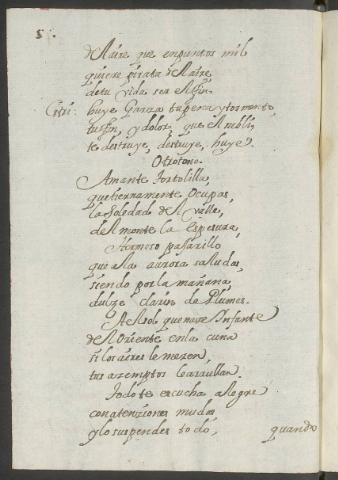 de Aire que en puntos mil
quiere pirata de Matre
de tu vida ser Alfin
Cstri: huye Garza tu perca y tormento
tu fin, y dolor, que el nebli
te destruye, destruye, huye.
Otrotono
Amante Tortolilla
que tiernamente ocupas
la Soledad del valle,
del monte la espesura,
Hermoso pajarillo
que a la aurora saludas
siendo por la mañana
dulze clarin de Plumas.
Al sol que nace Infante
del Oriente en la cuna
si los aires le mezen,
tus azemptos le arrullan.
Todo te escucha alegre
con atenziones mudas
y lo suspendes todo, quando